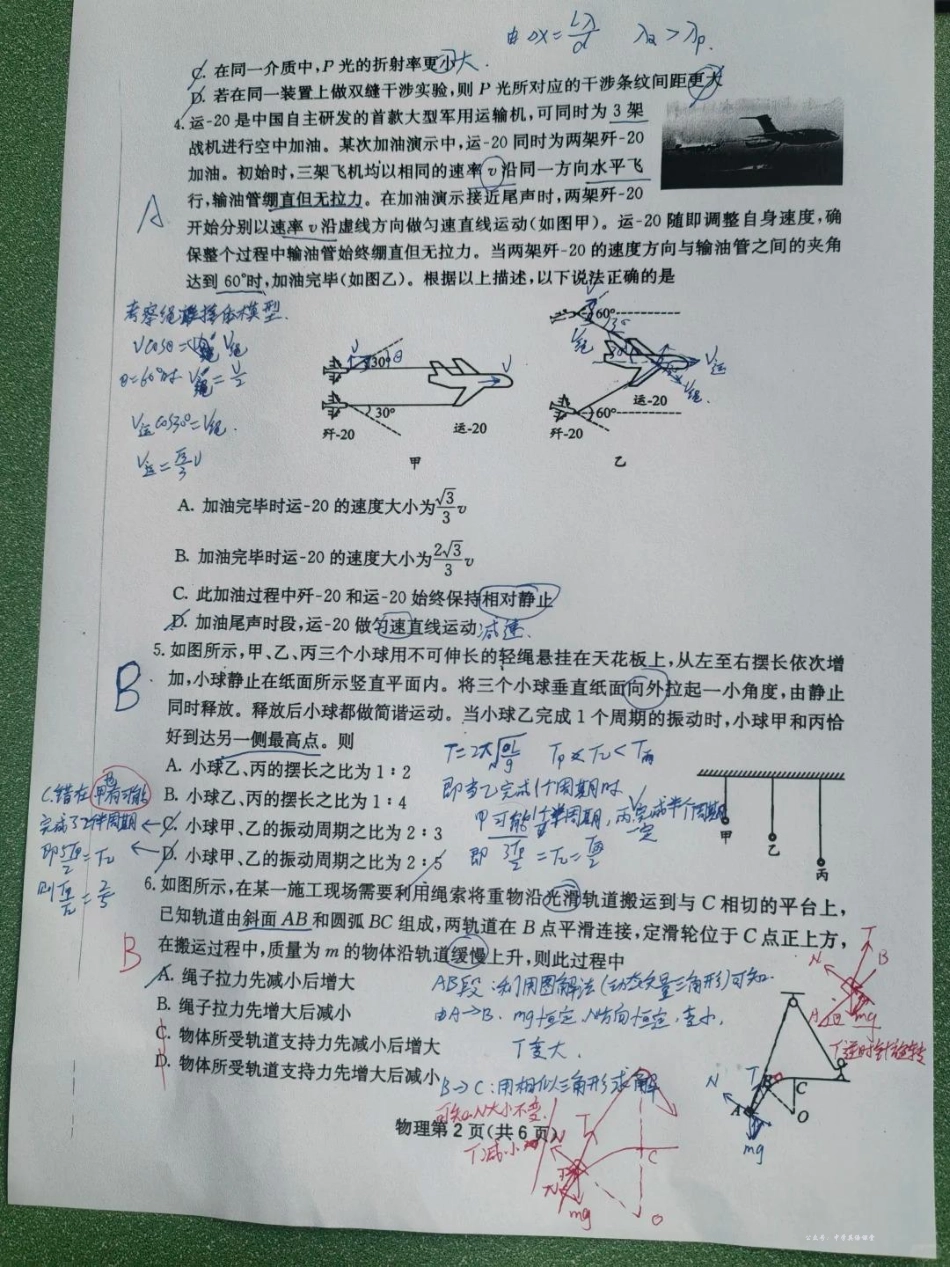 由 Δx=Lλ/d λa>λp.
C. 在同一介质中,P 光的折射率更小 大.
D. 若在同一装置上做双缝干涉实验,则 P 光所对应的干涉条纹间距更大
4. 运-20 是中国自主研发的首款大型军用运输机,可同时为 3 架
战机进行空中加油。某次加油演示中,运-20 同时为两架歼-20
加油。初始时,三架飞机均以相同的速率 v 沿同一方向水平飞
行,输油管绷直但无拉力。在加油演示接近尾声时,两架歼-20
A
开始分别以速率 v 沿虚线方向做匀速直线运动(如图甲)。运-20 随即调整自身速度,确
保整个过程中输油管始终绷直但无拉力。当两架歼-20 的速度方向与输油管之间的夹角
达到 60°时,加油完毕(如图乙)。根据以上描述,以下说法正确的是
考察绳连接体模型.
Vcosθ=V绳
θ=60°时 V绳=V/2
V运cos30°=V绳.
V运=√3/3 V
V 30° θ V
30°
歼-20 运-20
甲
V 60°
V绳 30° V运
V绳
运-20
60°
歼-20
乙
A. 加油完毕时运-20 的速度大小为√3/3 v
B. 加油完毕时运-20 的速度大小为2√3/3 v
C. 此加油过程中歼-20 和运-20 始终保持相对静止
D. 加油尾声时段,运-20 做匀速直线运动 减速、
5. 如图所示,甲、乙、丙三个小球用不可伸长的轻绳悬挂在天花板上,从左至右摆长依次增
B.
加,小球静止在纸面所示竖直平面内。将三个小球垂直纸面向外拉起一小角度,由静止
同时释放。释放后小球都做简谐运动。当小球乙完成 1 个周期的振动时,小球甲和丙恰
好到达另一侧最高点。则
T=2π√L/g T甲<T乙<T丙
A. 小球乙、丙的摆长之比为 1∶2
即当乙完成1个周期时
B. 小球乙、丙的摆长之比为 1∶4
C. 小球甲、乙的振动周期之比为 2∶3
D. 小球甲、乙的振动周期之比为 2∶5
即 3T甲/2=T乙=T丙/2
C.错在甲有可能
完成了2.5个周期
即5T甲/2=T乙
则T甲/T乙=2/5
甲
乙
丙
6. 如图所示,在某一施工现场需要利用绳索将重物沿光滑轨道搬运到与 C 相切的平台上,
已知轨道由斜面 AB 和圆弧 BC 组成,两轨道在 B 点平滑连接,定滑轮位于 C 点正上方,
B
在搬运过程中,质量为 m 的物体沿轨道缓慢上升,则此过程中
A. 绳子拉力先减小后增大
B. 绳子拉力先增大后减小
C. 物体所受轨道支持力先减小后增大
D. 物体所受轨道支持力先增大后减小
AB段:利用图解法(动态矢量三角形)可知
由A→B. mg恒定,N方向恒定,变小,
T变大.
B→C:用相似三角形求解
可知N大小不变.
T减小
T逆时针旋转
T
N B
A mg
N T B C
A O
mg
T N
B C
mg O
物理第 2 页(共 6 页)
公众号:中学英语课堂